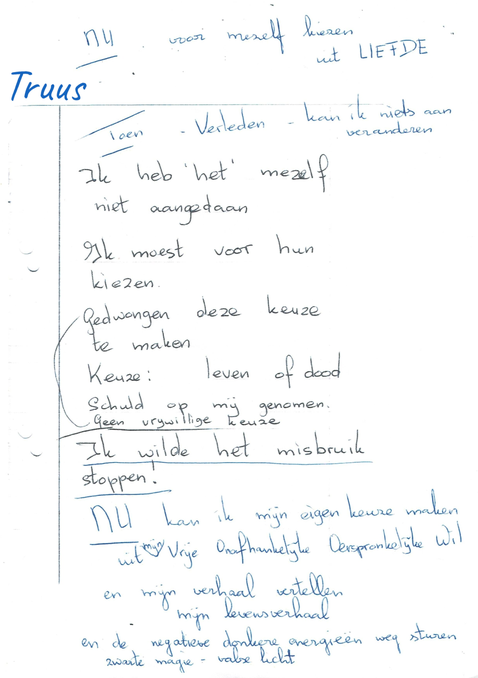 NU voor mezelf kiezen
uit LIEFDE
Truus
Toen - Verleden - kan ik niets aan
veranderen
Ik heb 'het' mezelf
niet aangedaan
Ik moest voor hun
kiezen.
Gedwongen deze keuze
te maken
Keuze: leven of dood
Schuld op mij genomen.
Geen vrywillige keuze
Ik wilde het misbruik
stoppen!
NU kan ik mijn eigen keuze maken
uit mijn Vrije Onafhankelijke Oerspronkelijke Wil
en mijn verhaal vertellen
mijn levensverhaal
en de negatieve donkere energieën weg sturen
zwarte magie - valse licht